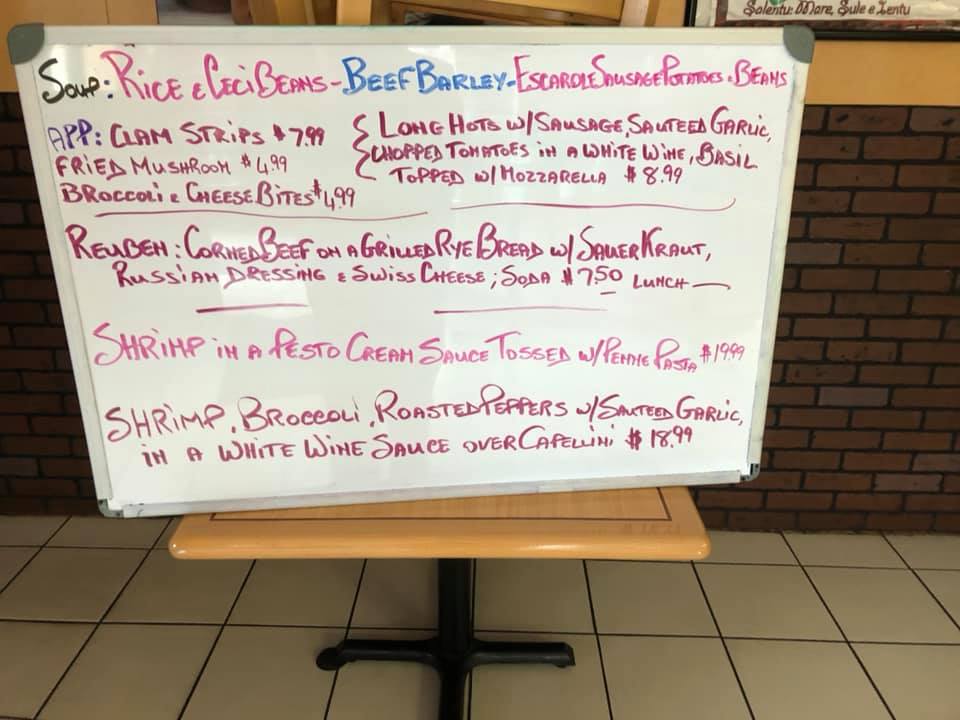 Salentu: Mare, Sule e Ientu
Soup: Rice & Ceci Beans - Beef Barley - Escarole Sausage Potatoes & Beans
App: Clam Strips $7.99
Fried Mushroom $4.99
Broccoli & Cheese Bites $4.99
Long Hots w/ Sausage, Sauteed Garlic,
Chopped Tomatoes in a White Wine, Basil
Topped w/ Mozzarella $8.99
Reuben: Corned Beef on a Grilled Rye Bread w/ Sauer Kraut,
Russian Dressing & Swiss Cheese; Soda $7.50 Lunch
Shrimp in a Pesto Cream Sauce Tossed w/ Penne Pasta $19.99
Shrimp, Broccoli, Roasted Peppers w/ Sauteed Garlic,
in a White Wine Sauce over Capellini $18.99